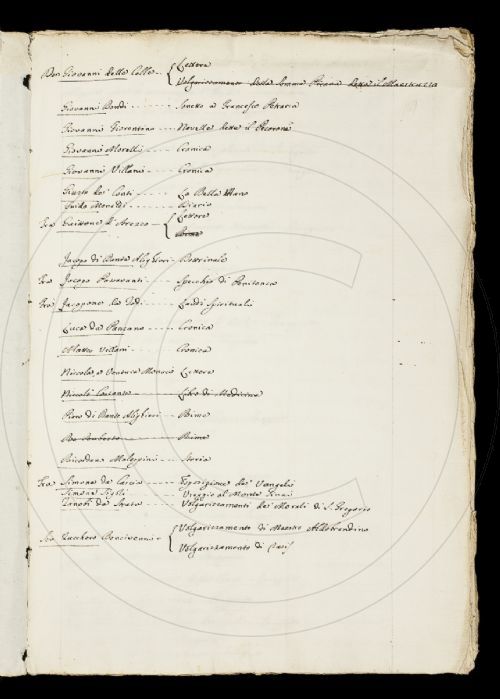 Don Giovanni delle Celle - Lettere
Volgarizzamento della Somma Pisana detta il Maestruzzo
Giovanni Dondi - Sonetto a Francesco Petrarca
Giovanni Fiorentino - Novelle dette il Pecorone
Giovanni Morelli - Cronica
Giovanni Villani - Cronica
Giusto de' Conti - La Bella Mano
Guido Monaldi - Diario
Fra Guittone d'Arezzo - Lettere
Rime
Jacopo di Dante Alighieri - Dottrinale
Fra Jacopo Passavanti - Specchio di Penitenza
Fra Jacopone da Todi - Laudi Spirituali
Luca da Panzano - Cronica
Matteo Villani - Cronica
Niccola, e Ventura Monaci Lettere
Niccolò - Libro di Medicina
Piero di Dante Alighieri - Rime
Rime
Ricordano Malespini - Storia
Fra Simone da Cascia - Esposizione de' Vangeli
Simone Sigoli Viaggio al Monte Sinai
Zanobi da Strata - Volgarizzamento de' Morali di S. Gregorio
Volgarizzamento di Maestro Aldobrandino
Zucchero Bencivenni
Volgarizzamento di